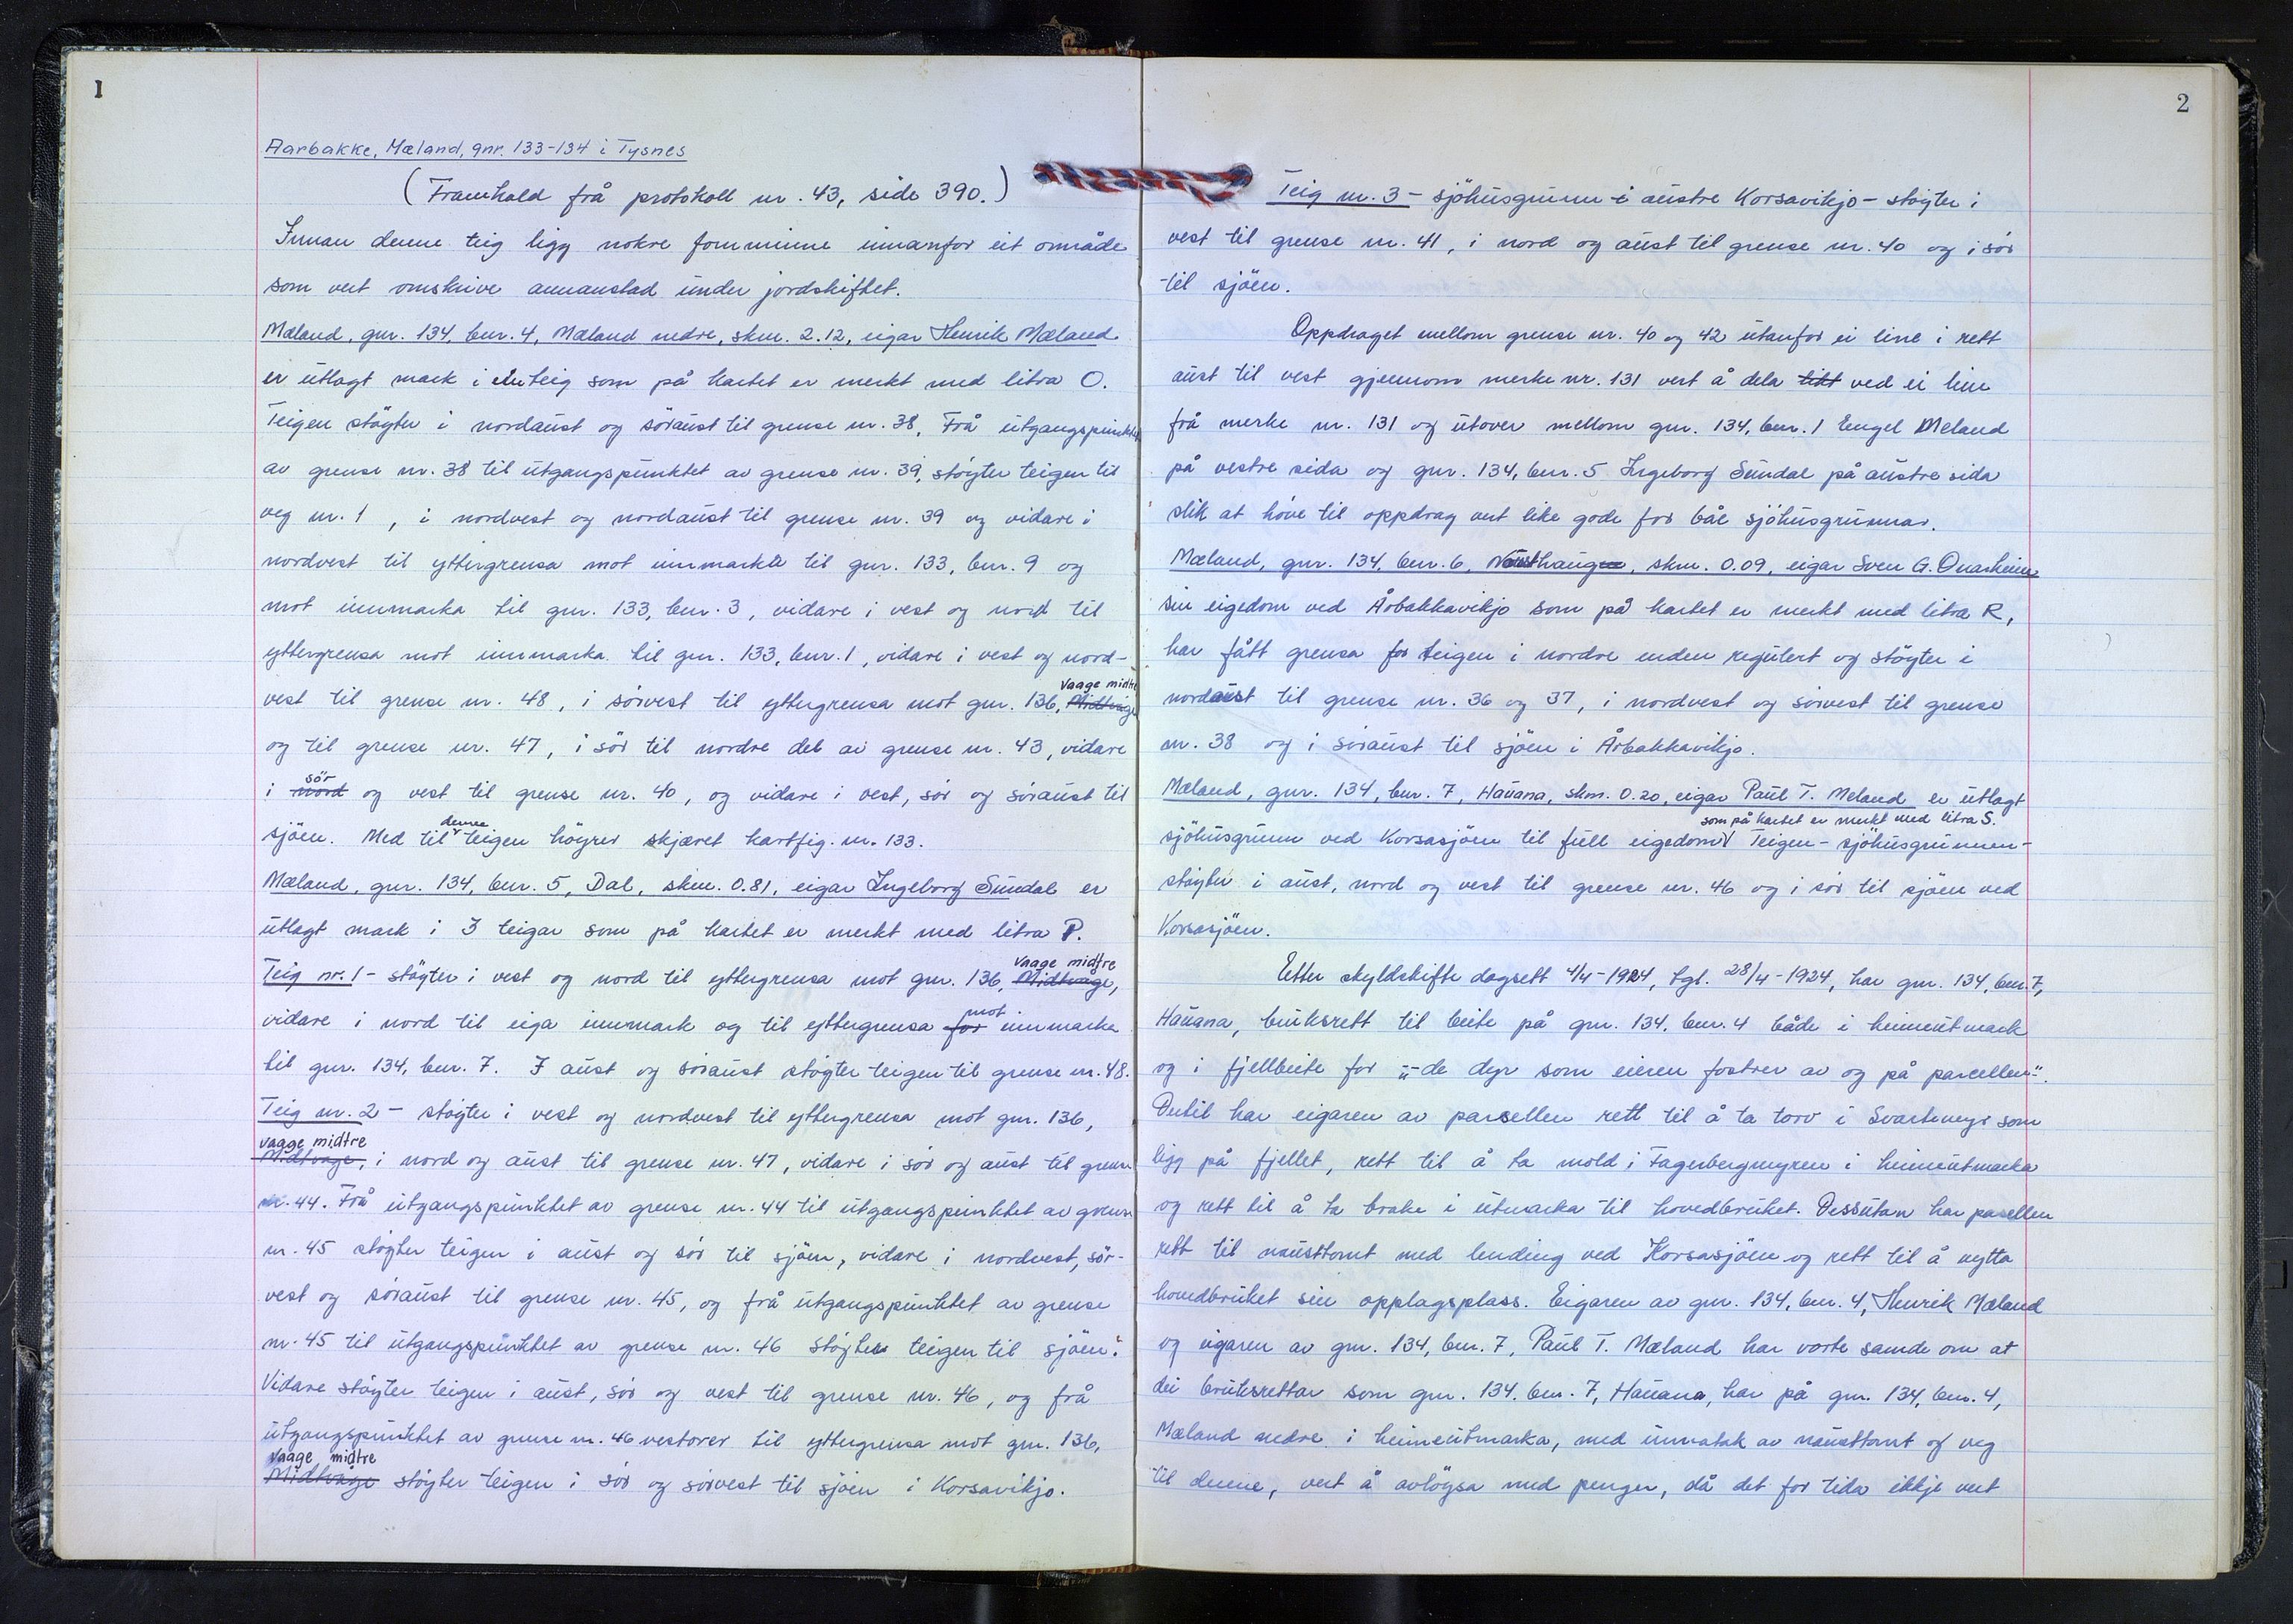 1
Aarbakke, Mæland, gnr. 133-134 i Tysnes
(Framhald frå protokoll nr. 43, side 390.)
Innan denne teig ligg nokre fornminne innanfor eit område
som vert omskrive annanstad under jordskiftet.
Mæland, gnr. 134, bnr. 4, Mæland nedre, skm. 2.12, eigar Henrik Mæland
er utlagt mark i ein teig som på kartet er merkt med litra O.
Teigen støyter i nordaust og søraust til grense nr. 38. Frå utgangspunktet
av grense nr. 38 til utgangspunktet av grense nr. 39, støyter teigen til
veg nr. 1, i nordvest og nordaust til grense nr. 39 og vidare i
nordvest til yttergrensa mot innmarka til gnr. 133, bnr. 9 og
mot innmarka til gnr. 133, bnr. 3, vidare i vest og nord til
yttergrensa mot innmarka til gnr. 133, bnr. 1, vidare i vest og nord-
Vaage midtre
vest til grense nr. 48, i sørvest til yttergrensa mot gnr. 136, Midtvage
og til grense nr. 47, i sør til nordre del av grense nr. 43, vidare
sör
i nord og vest til grense nr. 40, og vidare i vest, sør og søraust til
denne
sjöen. Med til teigen höyrer skjæret kartfig. nr. 133.
Mæland, gnr. 134, bnr. 5, Dal, skm. 0.81, eigar Ingeborg Sundal er
utlagt mark i 3 teigar som på kartet er merkt med litra P.
Vaage midtre
Teig nr. 1 - støyter i vest og nord til yttergrensa mot gnr. 136, Midtvage,
mot
vidare i nord til eiga innmark og til yttergrensa for innmarka
til gnr. 134, bnr. 7. I aust og søraust støyter teigen til grense nr. 48.
Teig nr. 2 - støyter i vest og nordvest til yttergrensa mot gnr. 136,
Vaage midtre
Midtvage, i nord og aust til grense nr. 47, vidare i sør og aust til grense
nr. 44. Frå utgangspunktet av grense nr. 44 til utgangspunktet av grense
nr. 45 støyter teigen i aust og sør til sjöen, vidare i nordvest, sør-
vest og søraust til grense nr. 45, og frå utgangspunktet av grense
nr. 45 til utgangspunktet av grense nr. 46 støyter teigen til sjöen.
Vidare støyter teigen i aust, sør og vest til grense nr. 46, og frå
utgangspunktet av grense nr. 46 vestover til yttergrensa mot gnr. 136,
Vaage midtre
Midtvage støyter teigen i sør og sørvest til sjöen i Korsavikjo.
2
Teig nr. 3 - sjöhusgrunn i austre Korsavikjo - støyter i
vest til grense nr. 41, i nord og aust til grense nr. 40 og i sør
til sjöen.
Oppdraget mellom grense nr. 40 og 42 utanfor ei line i rett
aust til vest gjennom merke nr. 131 vert å dela likt ved ei line
frå merke nr. 131 og utover mellom gnr. 134, bnr. 1 Engel Mæland
på vestre sida og gnr. 134, bnr. 5 Ingeborg Sundal på austre sida
slik at höve til oppdrag vert like gode for båe sjöhusgrunnar.
Mæland, gnr. 134, bnr. 6, Nausthaugen, skm. 0.09, eigar Sven G. Onarheim
sin eigedom ved Årbakkavikjo som på kartet er merkt med litra R,
har fått grensa for teigen i nordre enden regulert og støyter i
nordaust til grense nr. 36 og 37, i nordvest og sørvest til grense
nr. 38 og i søraust til sjöen i Årbakkavikjo.
Mæland, gnr. 134, bnr. 7, Hauana, skm. 0.20, eigar Paul T. Meland er utlagt
som på kartet er merkt med litra S.
sjöhusgrunn ved Korsasjöen til full eigedom Teigen - sjöhusgrunnen -
støyter i aust, nord og vest til grense nr. 46 og i sør til sjöen ved
Korsasjöen.
Etter skyldskifte dagsett 4/4-1924, tgl. 28/4-1924, har gnr. 134, bnr. 7,
Hauana, bruksrett til beite på gnr. 134, bnr. 4 både i heimeutmark
og i fjellbeite for "de dyr som eieren fostrer av og på parcellen".
Dertil har eigaren av parsellen rett til å ta torv i Svartemyr som
ligg på fjellet, rett til å ta mold i Fagerbergmyren i heimeutmarka
og rett til å ta brake i utmarka til hovedbruket. Dessutan har pasellen
rett til nausttomt med lending ved Korsasjöen og rett til å nytta
hovedbruket sin opplagsplass. Eigaren av gnr. 134, bnr. 4, Henrik Mæland
og eigaren av gnr. 134, bnr. 7, Paul T. Mæland har vorte samde om at
dei bruksrettar som gnr. 134, bnr. 7, Hauana, har på gnr. 134, bnr. 4,
Mæland nedre i heimeutmarka, med unnatak av nausttomt og veg
til denne, vert å avlöysa med pengar, då det for tida ikkje vert